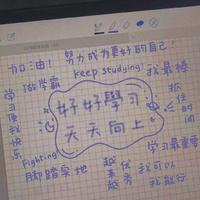 加油!
努力成为更好的自己!
做学霸
keep studying!
我最棒
抓住时间
学习使我快乐
好好學习
天天向上
Fighting!
脚踏实地
越来越优秀
我可以
学习最重要
我能行